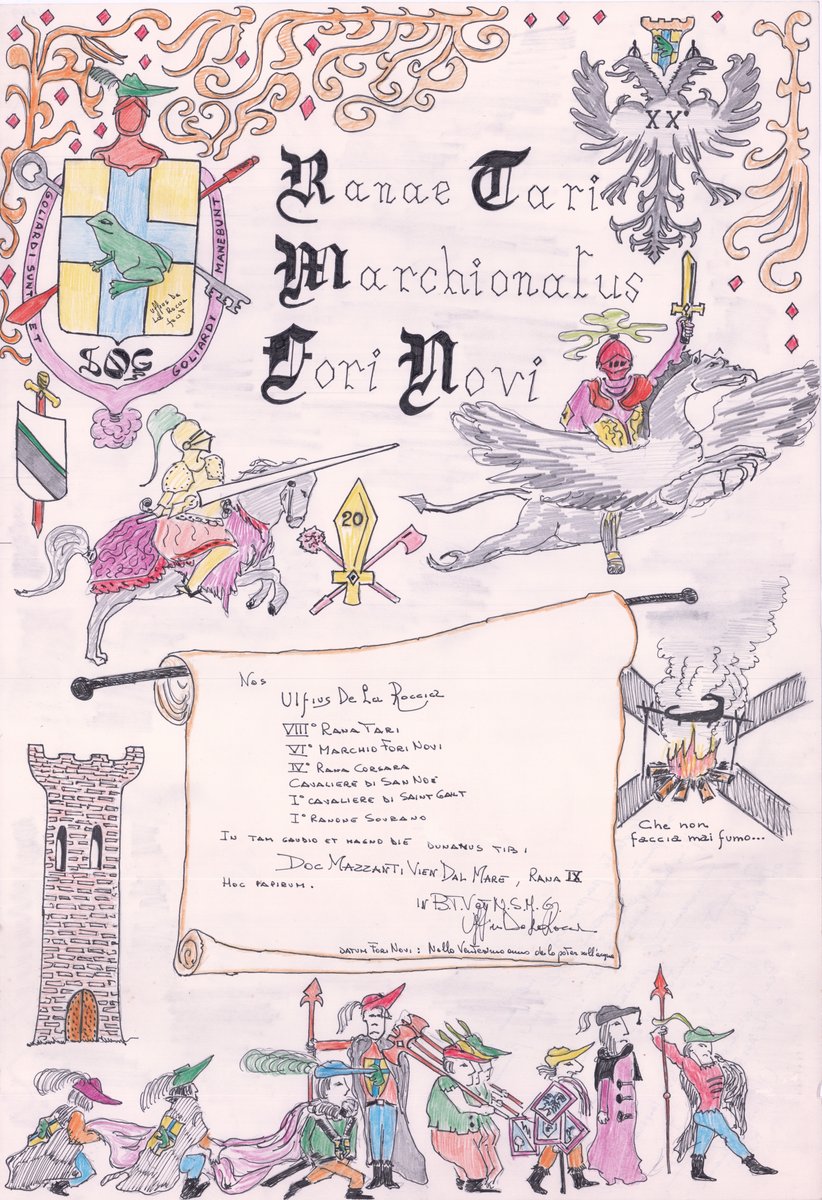 XX°
Ranae Tari
Marchionatus
Fori Novi
GOLIARDI SUNT ET GOLIARDI MANEBUNT
Ulfius De
La Roccia
fecit
SOG
20
Nos
Ulfius De La Roccia
VIII° RANA TARI
VI° MARCHIO FORI NOVI
IV° RANA CORSARA
CAVALIERE DI SAN NOÈ
I° CAVALIERE DI SAINT GALT
I° RANONE SOVRANO
IN TAM GAUDIO ET MAGNO DIE DUNAMUS TIBI
DOC MAZZANTI VIEN DAL MARE, RANA IX
HOC PAPIRUM.
Ulfius De La Roccia
DATUM FORI NOVI: Nello Ventesimo anno de lo potere sull'acqua
Che non
faccia mai fumo...